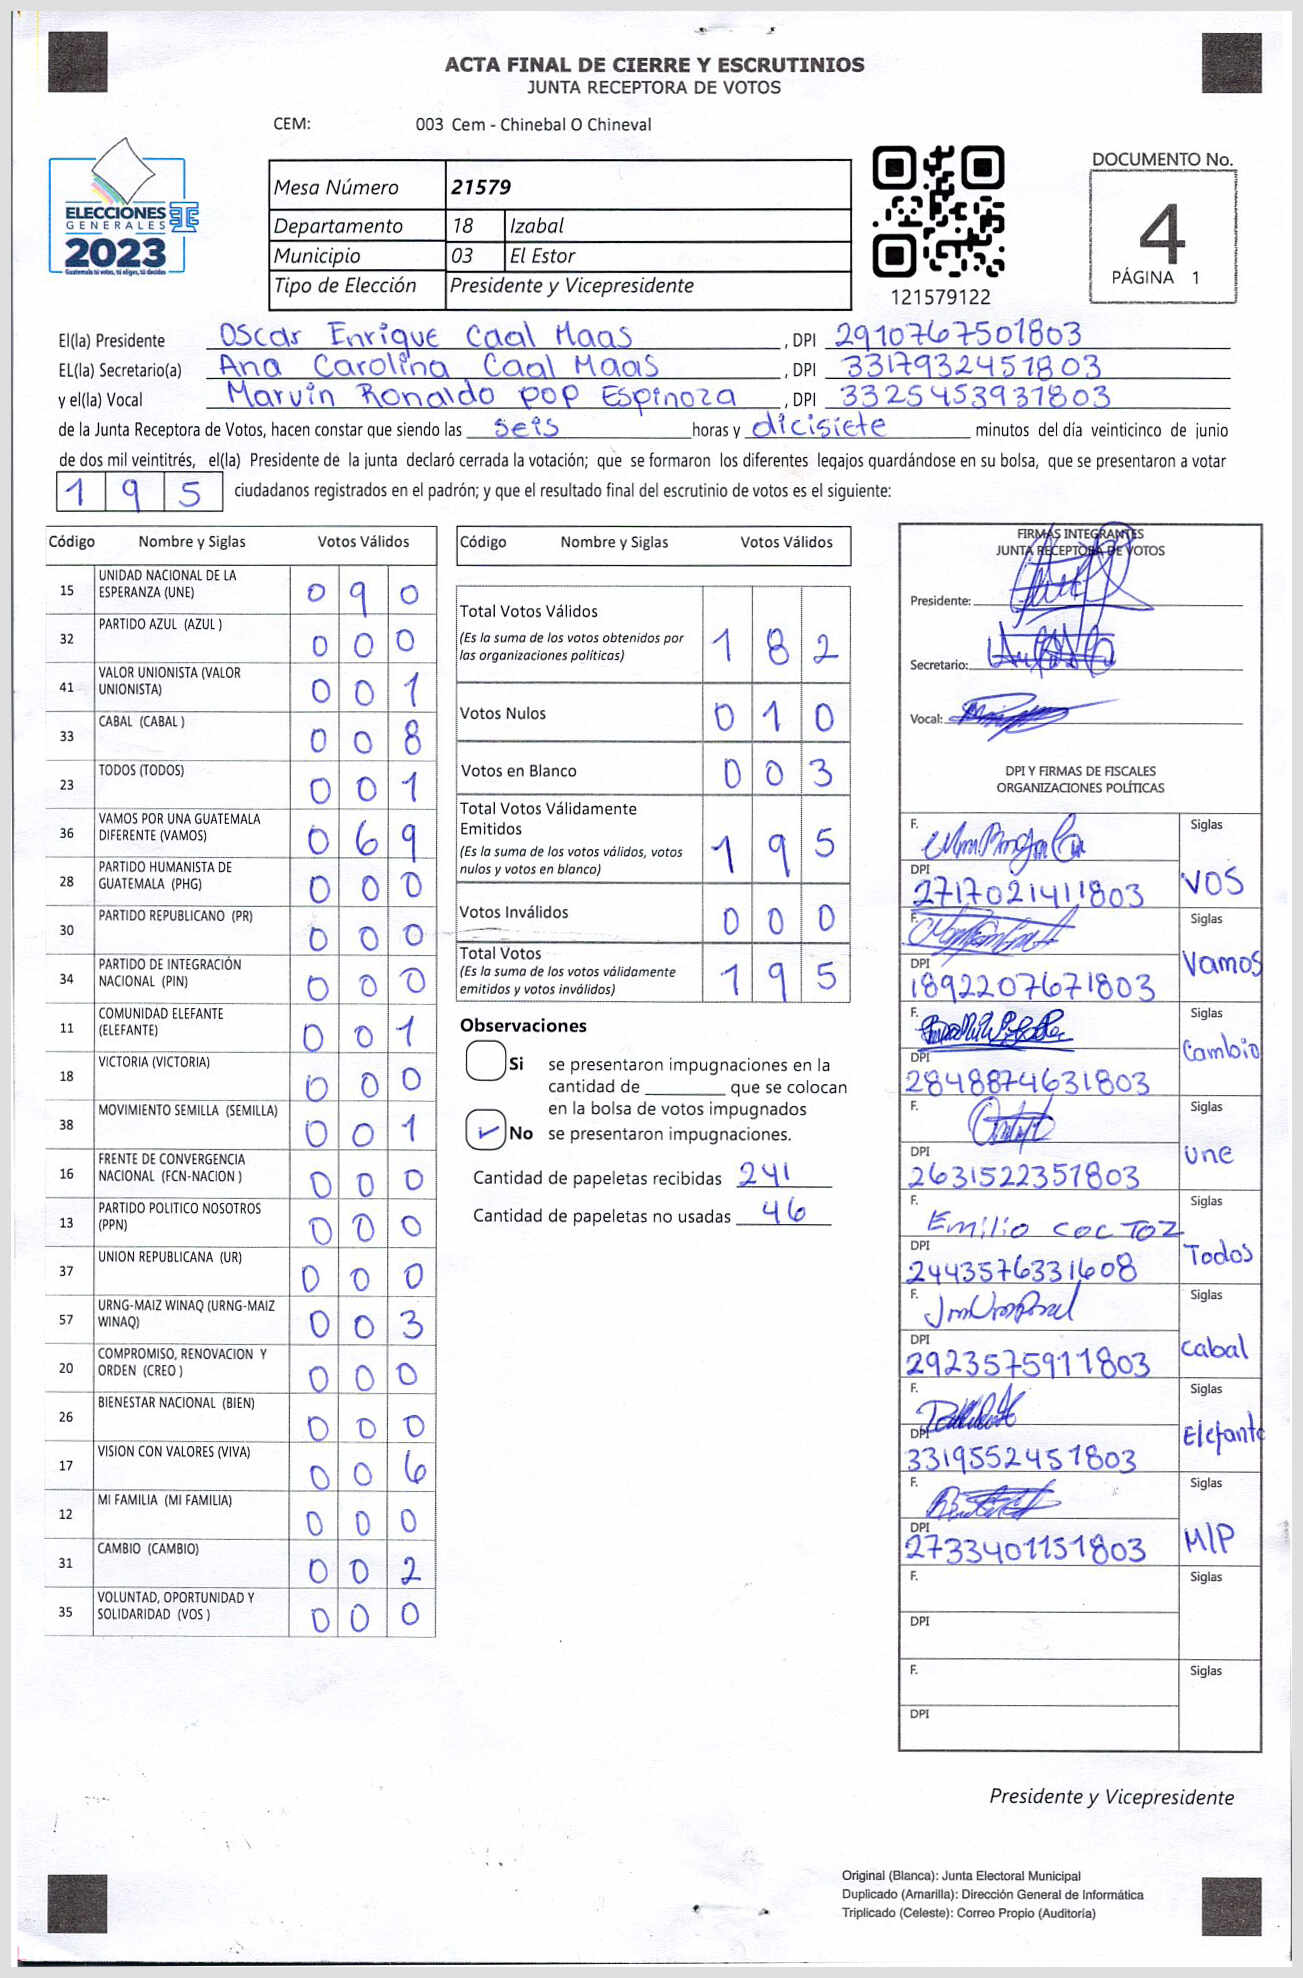 ACTA FINAL DE CIERRE Y ESCRUTINIOS
JUNTA RECEPTORA DE VOTOS
CEM: 003 Cem - Chinebal O Chineval
ELECCIONES
GENERALES
2023
Guatemala tú votas, tú eliges, tú decides
Mesa Número 21579
Departamento 18 Izabal
Municipio 03 El Estor
Tipo de Elección Presidente y Vicepresidente
121579122
DOCUMENTO No.
4
PÁGINA 1
El(la) Presidente Oscar Enrique Caal Maas, DPI 2910767501803
EL(la) Secretario(a) Ana Carolina Caal Maas, DPI 3317932451803
y el(la) Vocal Marvin Ronaldo pop Espinoza, DPI 3325453931803
de la Junta Receptora de Votos, hacen constar que siendo las seis horas y dicisiete minutos del día veinticinco de junio
de dos mil veintitrés, el(la) Presidente de la junta declaró cerrada la votación; que se formaron los diferentes legajos guardándose en su bolsa, que se presentaron a votar
1 9 5 ciudadanos registrados en el padrón; y que el resultado final del escrutinio de votos es el siguiente:
Código Nombre y Siglas Votos Válidos
15 UNIDAD NACIONAL DE LA
ESPERANZA (UNE) 0 9 0
32 PARTIDO AZUL (AZUL ) 0 0 0
41 VALOR UNIONISTA (VALOR
UNIONISTA) 0 0 1
33 CABAL (CABAL ) 0 0 8
23 TODOS (TODOS) 0 0 1
36 VAMOS POR UNA GUATEMALA
DIFERENTE (VAMOS) 0 6 9
28 PARTIDO HUMANISTA DE
GUATEMALA (PHG) 0 0 0
30 PARTIDO REPUBLICANO (PR) 0 0 0
34 PARTIDO DE INTEGRACIÓN
NACIONAL (PIN) 0 0 0
11 COMUNIDAD ELEFANTE
(ELEFANTE) 0 0 1
18 VICTORIA (VICTORIA) 0 0 0
38 MOVIMIENTO SEMILLA (SEMILLA) 0 0 1
16 FRENTE DE CONVERGENCIA
NACIONAL (FCN-NACION ) 0 0 0
13 PARTIDO POLITICO NOSOTROS
(PPN) 0 0 0
37 UNION REPUBLICANA (UR) 0 0 0
57 URNG-MAIZ WINAQ (URNG-MAIZ
WINAQ) 0 0 3
20 COMPROMISO, RENOVACION Y
ORDEN (CREO ) 0 0 0
26 BIENESTAR NACIONAL (BIEN) 0 0 0
17 VISION CON VALORES (VIVA) 0 0 6
12 MI FAMILIA (MI FAMILIA) 0 0 0
31 CAMBIO (CAMBIO) 0 0 2
35 VOLUNTAD, OPORTUNIDAD Y
SOLIDARIDAD (VOS ) 0 0 0
Código Nombre y Siglas Votos Válidos
Total Votos Válidos
(Es la suma de los votos obtenidos por
las organizaciones políticas) 1 8 2
Votos Nulos 0 1 0
Votos en Blanco 0 0 3
Total Votos Válidamente
Emitidos
(Es la suma de los votos válidos, votos
nulos y votos en blanco) 1 9 5
Votos Inválidos 0 0 0
Total Votos
(Es la suma de los votos válidamente
emitidos y votos inválidos) 1 9 5
Observaciones
Si se presentaron impugnaciones en la
cantidad de ________ que se colocan
en la bolsa de votos impugnados
No se presentaron impugnaciones.
Cantidad de papeletas recibidas 241
Cantidad de papeletas no usadas 46
FIRMAS INTEGRANTES
JUNTA RECEPTORA DE VOTOS
Presidente:
Secretario:
Vocal:
DPI Y FIRMAS DE FISCALES
ORGANIZACIONES POLÍTICAS
F. Siglas
DPI
2717021411803 VOS
F. Siglas
DPI
1892207671803 Vamos
F. Siglas
DPI
2848874631803 Cambio
F. Siglas
DPI
2631522351803 Une
F. Emilio coc TOZ Siglas
DPI
2443576331608 Todos
F. Siglas
DPI
2923575911803 Cabal
F. Siglas
DPI
3319552451803 Elefante
F. Siglas
DPI
2733401151803 MLP
F. Siglas
DPI
F. Siglas
DPI
Presidente y Vicepresidente
Original (Blanca): Junta Electoral Municipal
Duplicado (Amarilla): Dirección General de Informática
Triplicado (Celeste): Correo Propio (Auditoría)